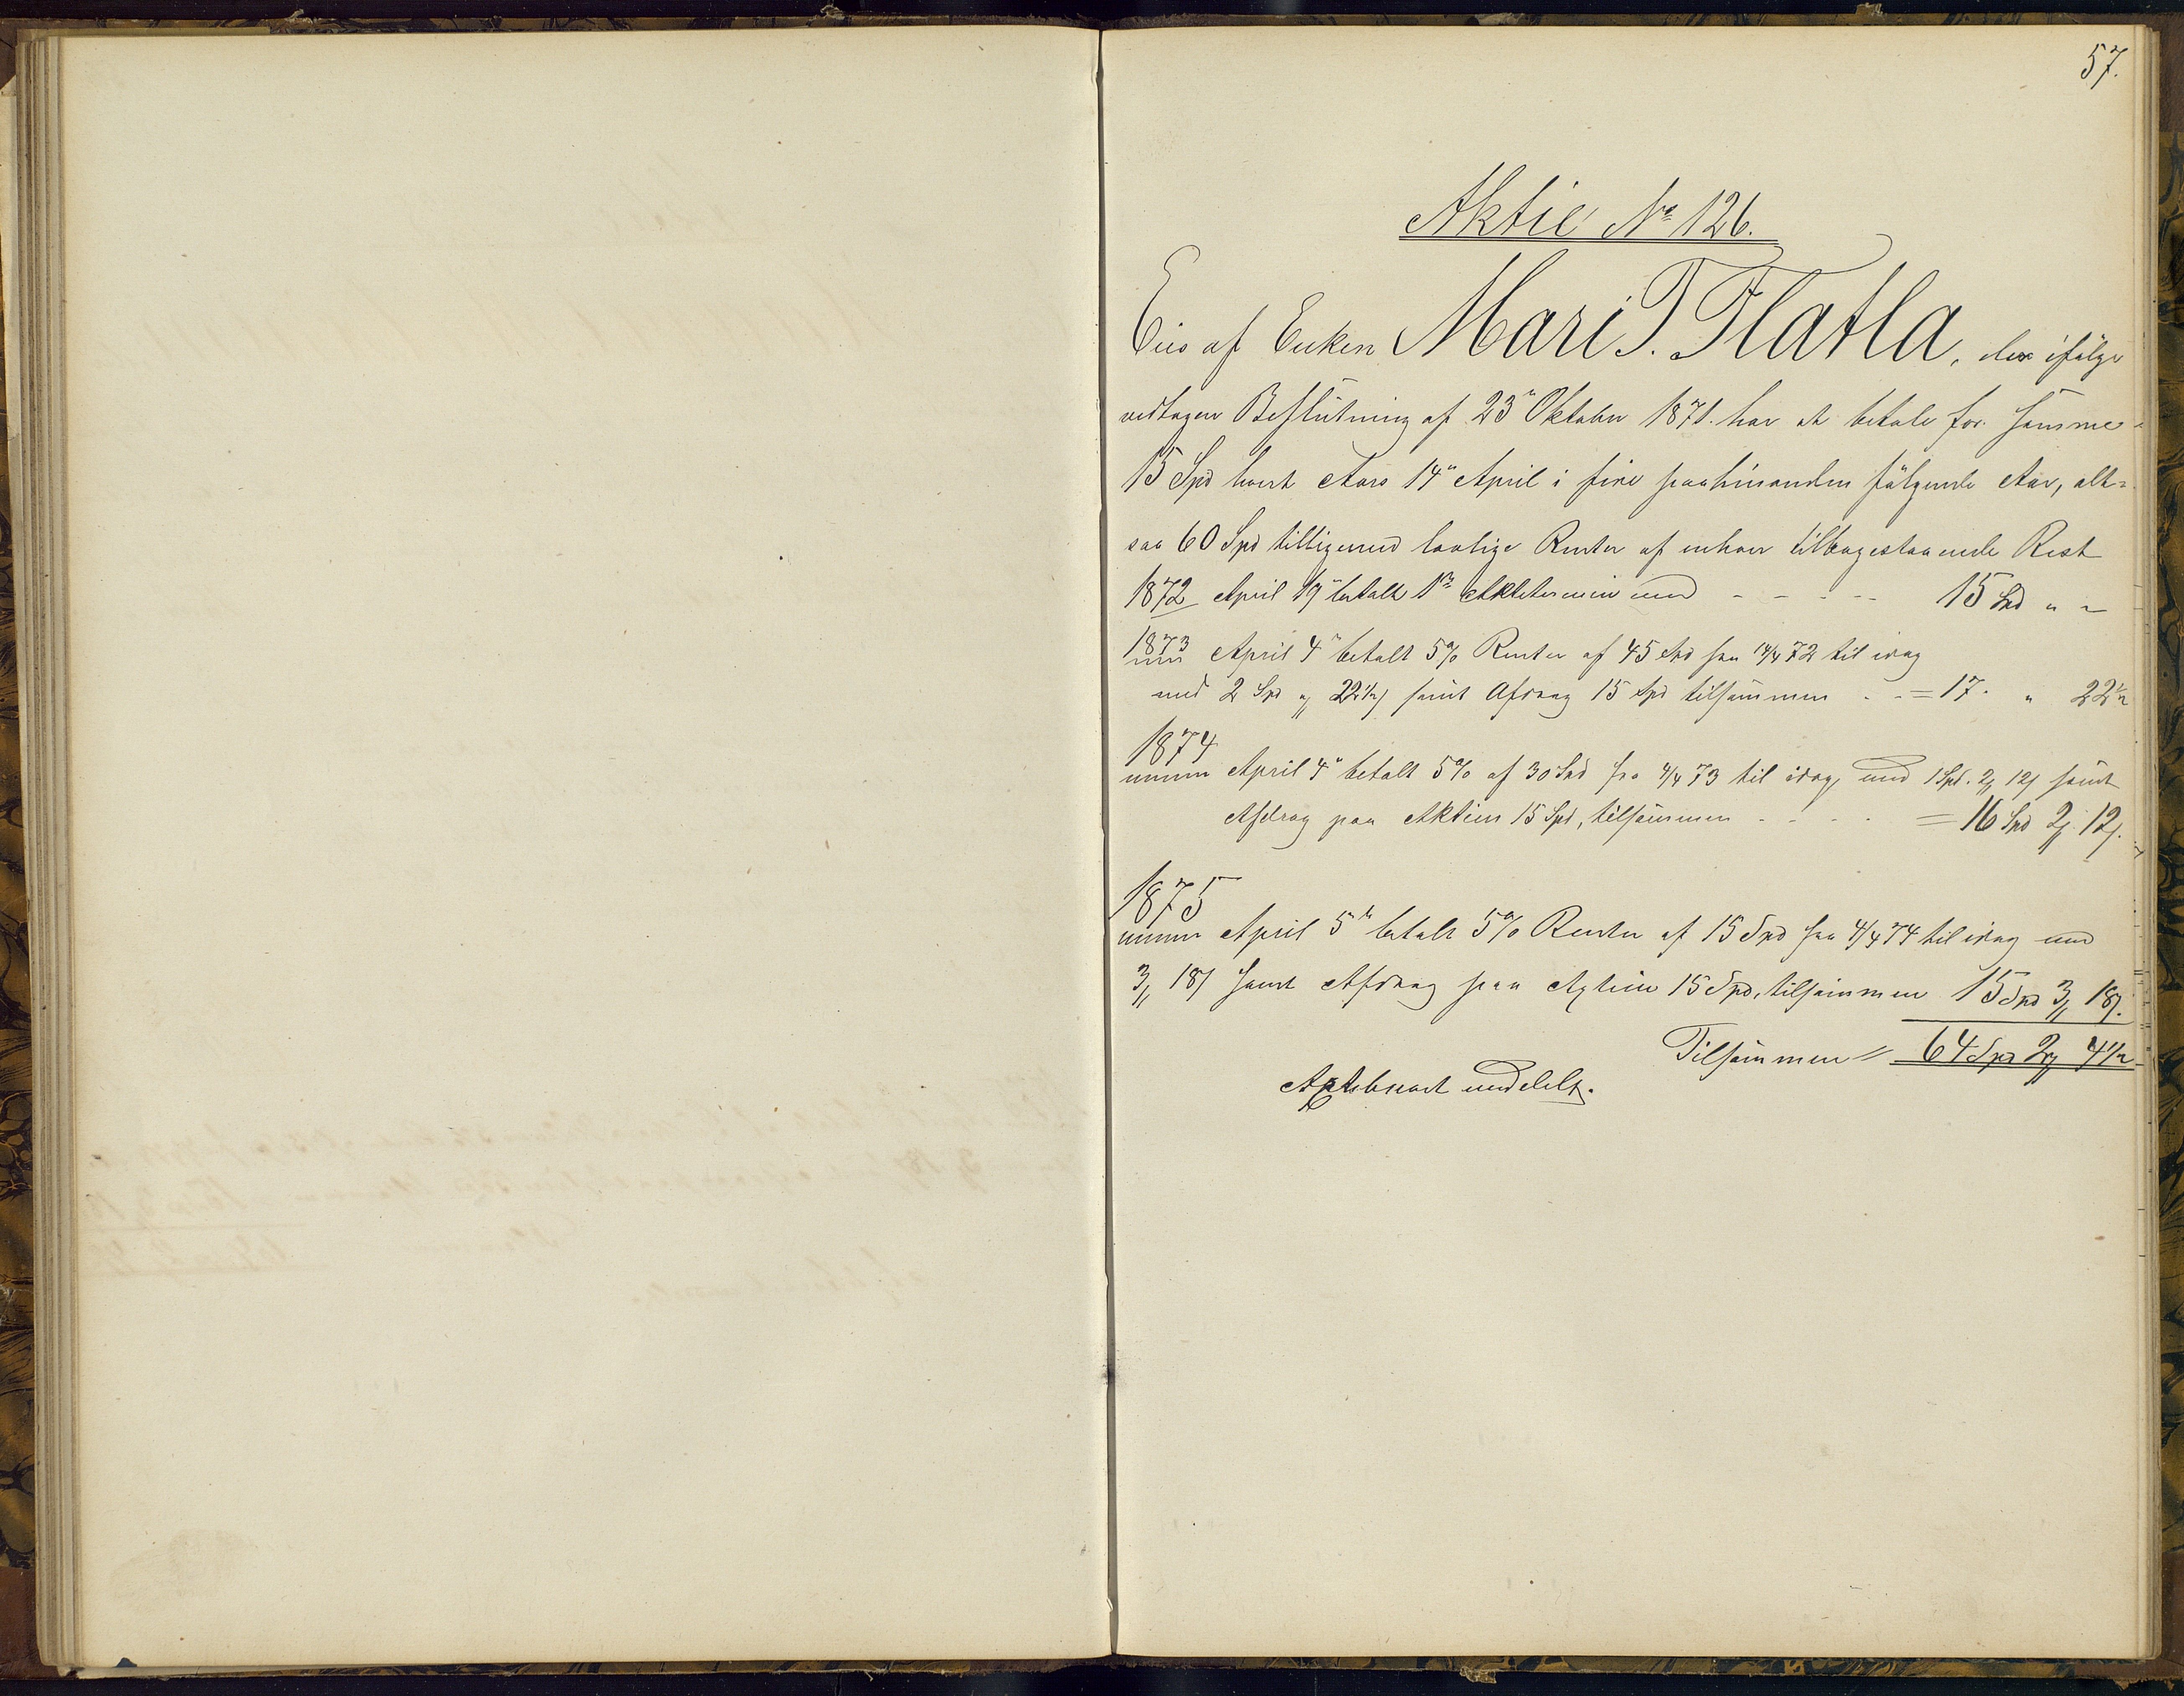 57.
Aktie No 126.
Eies af Enken Mari T. Flatla, der ifølge
vedtagen Beslutning af 23de Oktober 1871. har at betale for samme
15 Spd hvert Aars 14de April i fire paahinanden følgende Aar, alt=
saa 60 Spd tilligemed lovlige Renter af enhver tilbagestaaende Rest
1872 April 19de betalt 1ste Aktietermin med - - - - - 15 Spd " "
1873 April 4de betalt 5% Renter af 45 Spd fra 14/4 72 til idag
med 2 Spd " 22½ samt Afdrag 15 Spd tilsammen - - = 17. " 22½
1874
April 4de betalt 5% af 30 Spd fra 4/4 73 til idag, med 1 Spd. 2 12 samt
Afdrag paa Aktien 15 Spd, tilsammen - - - - = 16 Spd 2 12.
1875
April 5te betalt 5% Renter af 15 Spd fra 4/4 74 til idag med
3 18 samt Afdrag paa Aktien 15 Spd, tilsammen 15 Spd 3 18.
Tilsammen = 64 Spd 2 4½
meddelt.